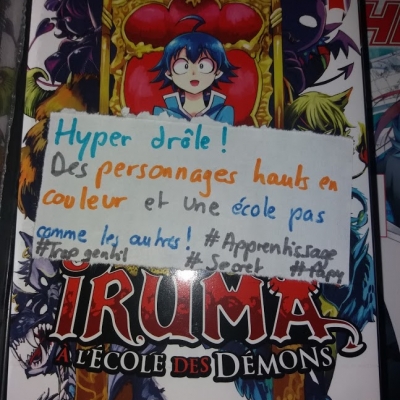 Hyper drôle !
Des personnages hauts en
couleur et une école pas
comme les autres ! #Apprentissage
#Trop gentil # Secret #Papy
IRUMA
À L'ÉCOLE DES DÉMONS